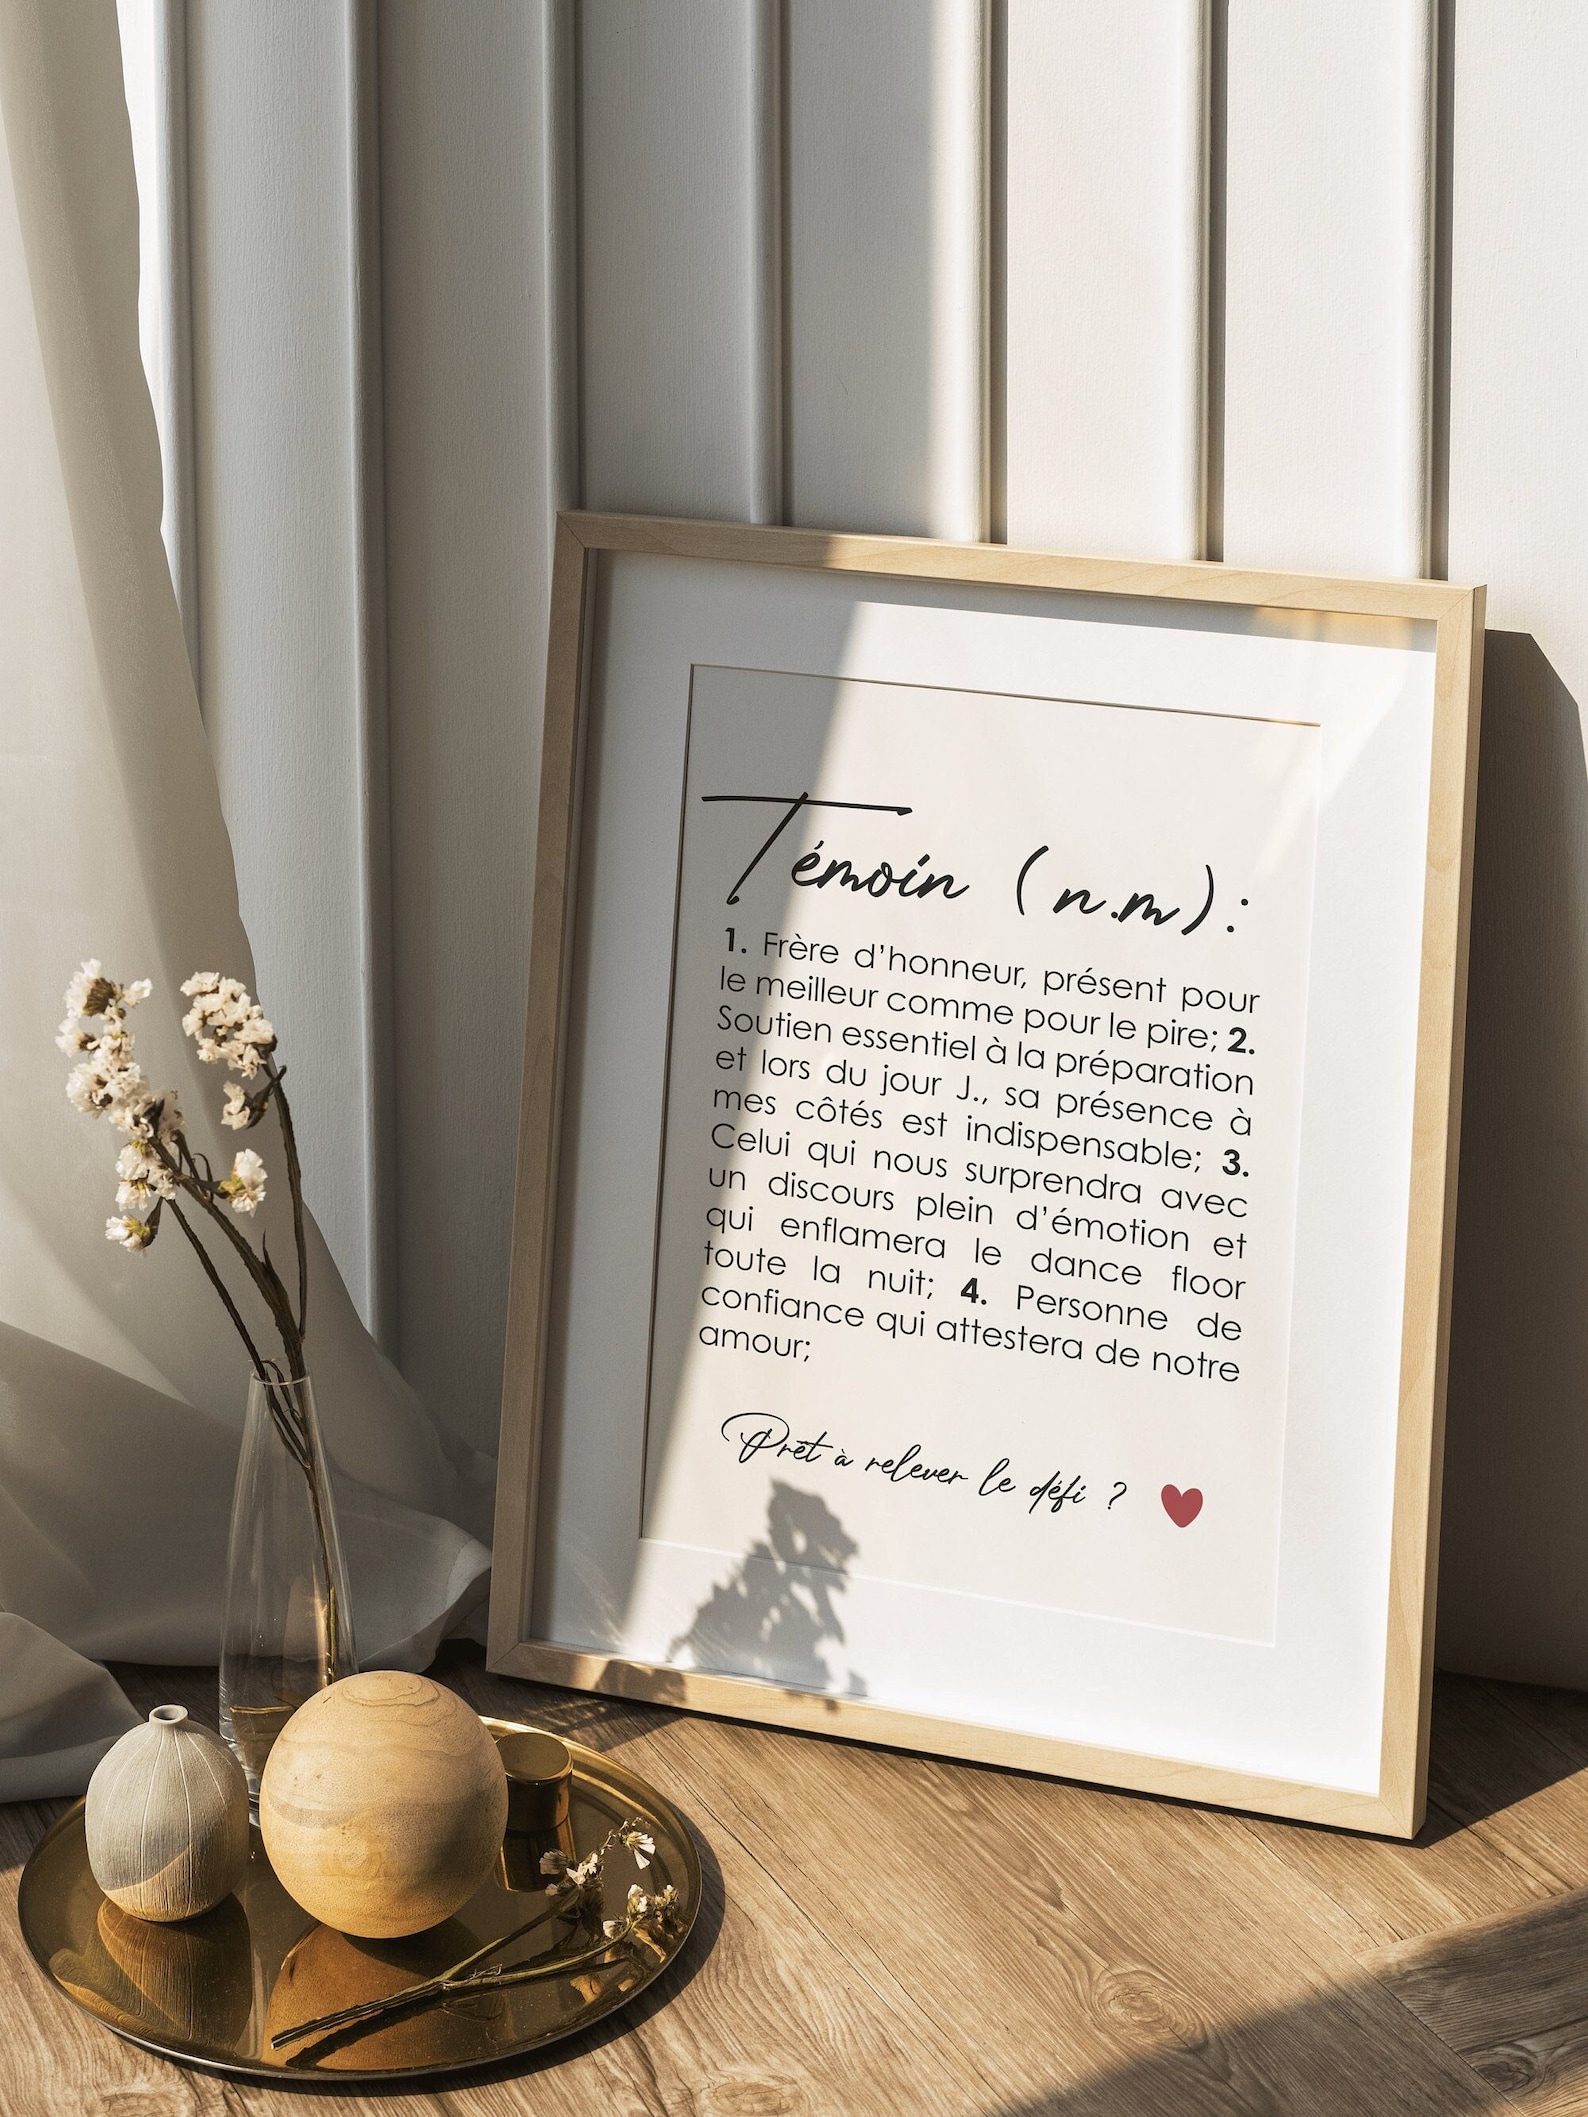 Témoin (n.m) :
1. Frère d'honneur, présent pour
le meilleur comme pour le pire; 2.
Soutien essentiel à la préparation
et lors du jour J., sa présence à
mes côtés est indispensable; 3.
Celui qui nous surprendra avec
un discours plein d'émotion et
qui enflamera le dance floor
toute la nuit; 4. Personne de
confiance qui attestera de notre
amour;
Prêt à relever le défi ?